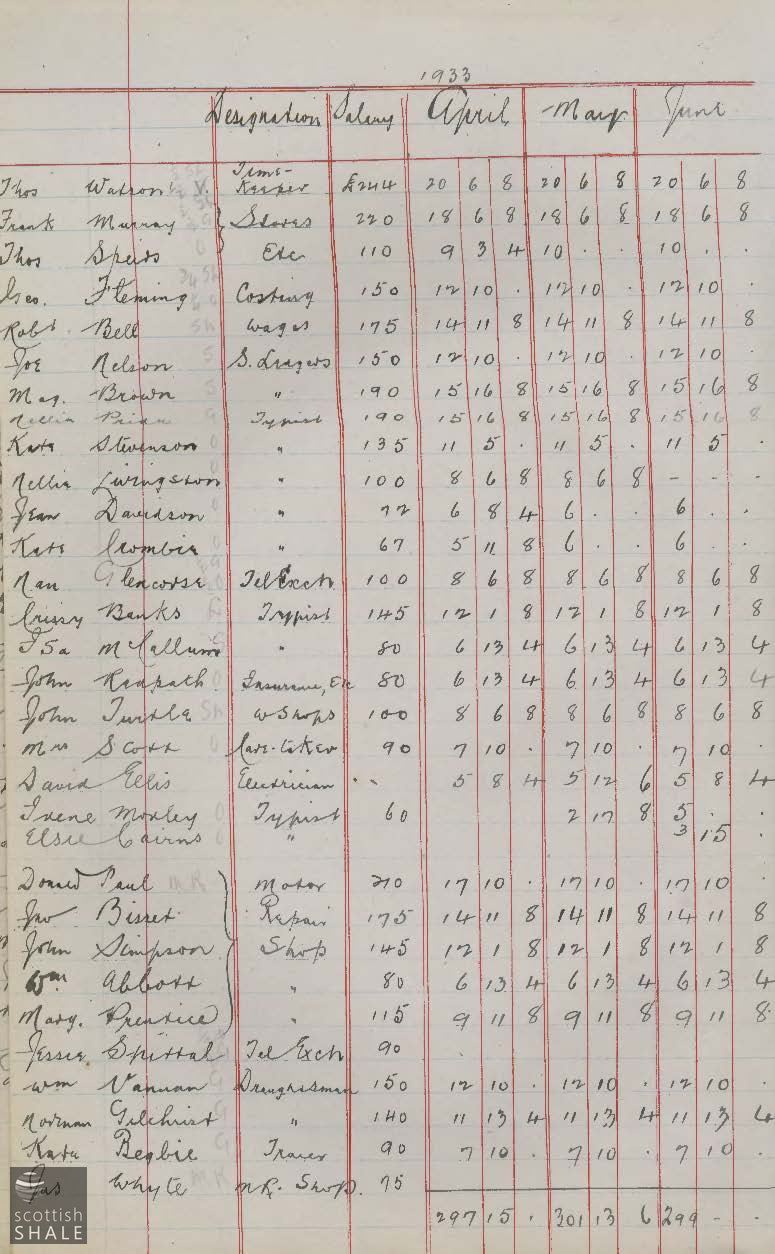 1933
Designation Salary April May June
Thos Watson Time-Keeper £244 20 6 8 20 6 8 20 6 8
Frank Murray } Stores 220 18 6 8 18 6 8 18 6 8
Thos Speirs Etc 110 9 3 4 10 . . 10 . .
Geo. Fleming Costing 150 12 10 . 12 10 . 12 10 .
Robt Bell Wages 175 14 11 8 14 11 8 14 11 8
Joe Nelson S. Ledgers 150 12 10 . 12 10 . 12 10 .
Mag. Brown " 190 15 16 8 15 16 8 15 16 8
Nellie Typist 190 15 16 8 15 16 8 15 16 8
Kate Stevenson " 135 11 5 . 11 5 . 11 5 .
Nellie Livingston " 100 8 6 8 8 6 8 - - -
Jean Davidson " 77 6 8 4 6 . . 6 . .
Kate Crombie " 67 5 11 8 6 . . 6 . .
Nan Glencorse Tel Exch 100 8 6 8 8 6 8 8 6 8
Crissy Banks Typist 145 12 1 8 12 1 8 12 1 8
Isa McCallum " 80 6 13 4 6 13 4 6 13 4
John Redpath Insurance, Etc 80 6 13 4 6 13 4 6 13 4
John Turtle W Shops 100 8 6 8 8 6 8 8 6 8
Mrs Scott Care-taker 90 7 10 . 7 10 . 7 10 .
David Ellis Electrician " 5 8 4 5 12 6 5 8 4
Irene Morley Typist 60 2 17 8 5 . .
Elsie Cairns " 3 15 .
Donald Paul Motor 210 17 10 . 17 10 . 17 10 .
Jno Bisset Repair 175 14 11 8 14 11 8 14 11 8
John Simpson Shop 145 12 1 8 12 1 8 12 1 8
Wm Abbott " 80 6 13 4 6 13 4 6 13 4
Marg. Prentice " 115 9 11 8 9 11 8 9 11 8
Jessie Spittal Tel Exch 90
Wm Vannan Draughtsman 150 12 10 . 12 10 . 12 10 .
Norman Gilchrist " 140 11 13 4 11 13 4 11 13 4
Kate Begbie Tracer 90 7 10 . 7 10 . 7 10 .
Jas Whyte M.R. Shop. 75
297 15 . 301 13 6 299 - -
scottish
SHALE